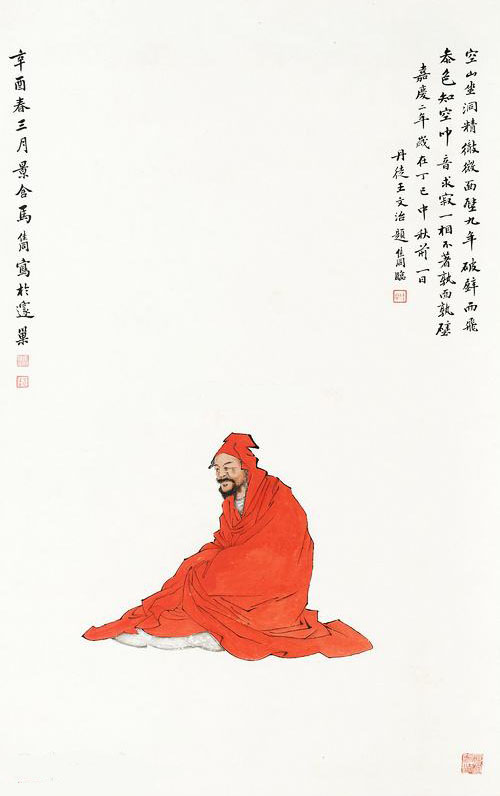 空山坐洞精徹微面壁九年破壁而飛
叅色知空叩音求寂一相不著孰面孰壁
嘉慶二年歲在丁巳中秋前一日
丹徒王文治題 儁臨
辛酉春三月景含馬儁寫於邃巢